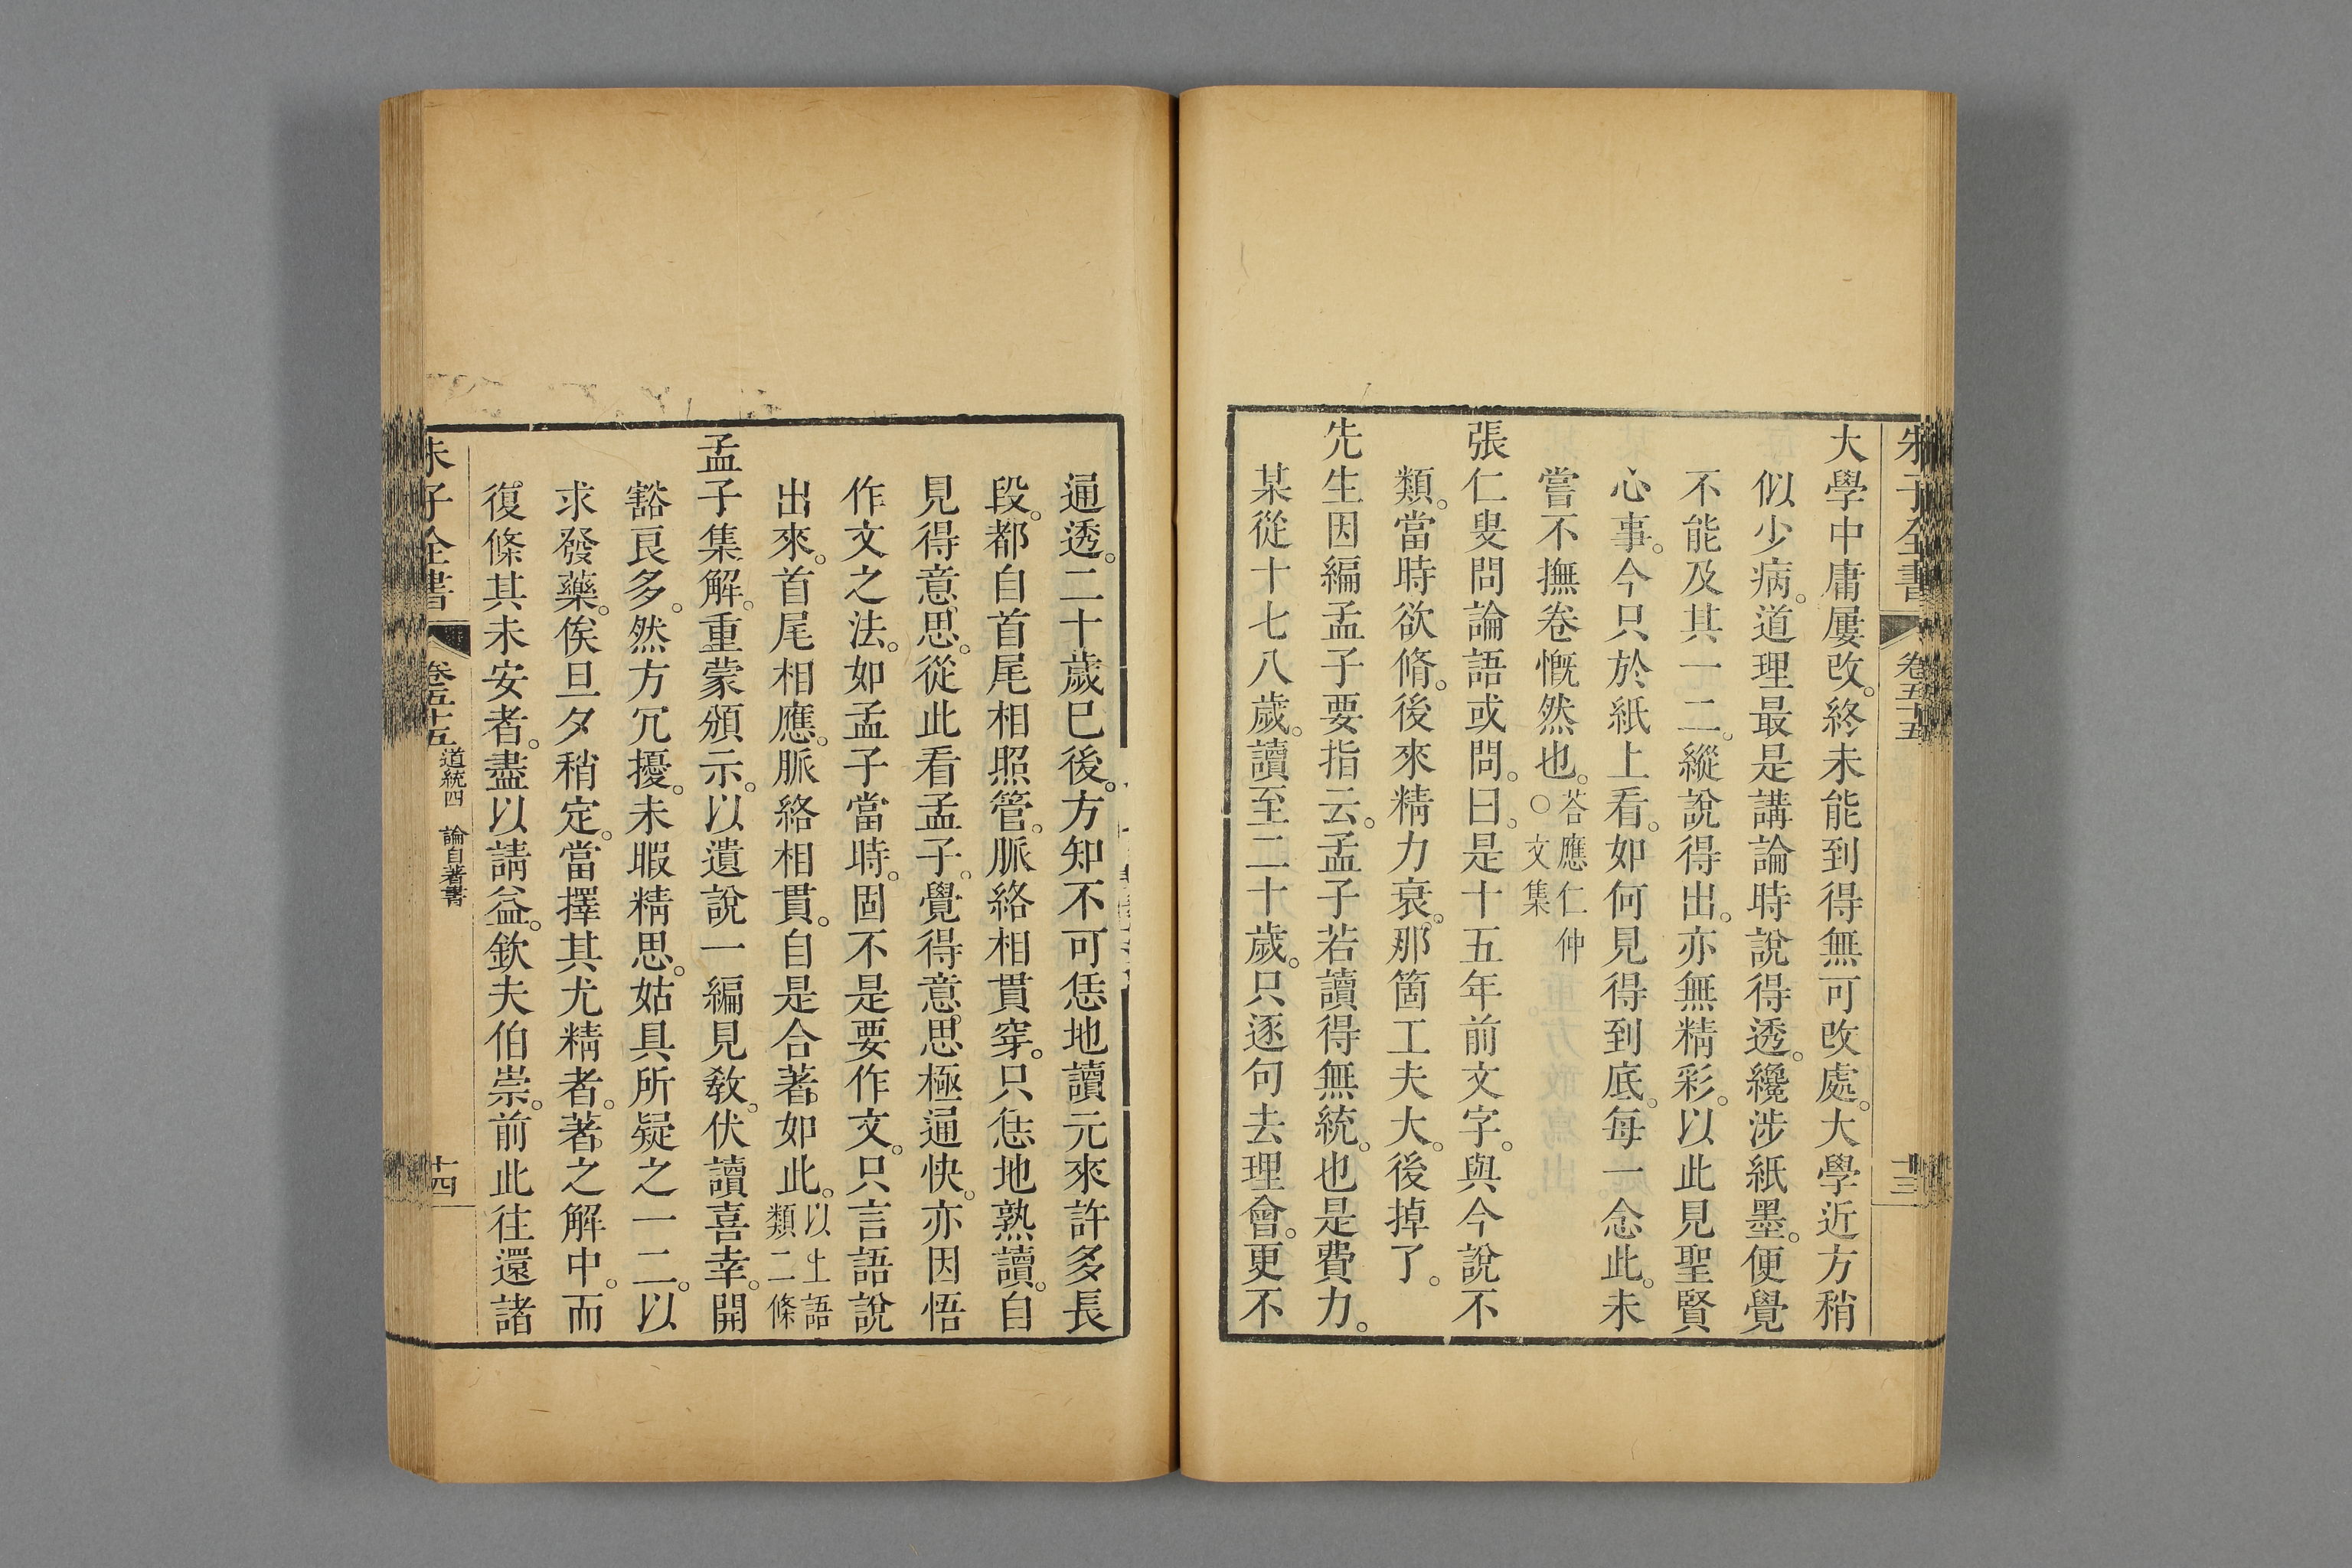 朱子全書 卷五十五 十三
大學中庸屢改。終未能到得無可改處。大學近方稍
似少病。道理最是講論時說得透。纔涉紙墨。便覺
不能及其一二。縱說得出。亦無精彩。以此見聖賢
心事。今只於紙上看。如何見得到底。每一念此。未
嘗不撫卷慨然也。○荅應仁仲文集
張仁叟問論語或問。曰。是十五年前文字。與今說不
類。當時欲脩。後來精力衰。那箇工夫大。後掉了。
先生因編孟子要指云。孟子若讀得無統。也是費力。
某從十七八歲。讀至二十歲。只逐句去理會。更不
通透。二十歲巳後。方知不可恁地讀元來許多長
段。都自首尾相照管。脈絡相貫穿。只恁地熟讀。自
見得意思。從此看孟子。覺得意思極通快。亦因悟
作文之法。如孟子當時。固不是要作文。只言語說
出來。首尾相應。脈絡相貫。自是合著如此。以上語類二條
孟子集解。重蒙頒示。以遺說一編見敎。伏讀喜幸。開
豁良多。然方冗擾。未暇精思。姑具所疑之一二。以
求發藥。俟旦夕稍定。當擇其尤精者。著之解中。而
復條其未安者。盡以請益。欽夫伯崇。前此往還諸
朱子全書 卷五十五 道統四 論自著書 十四